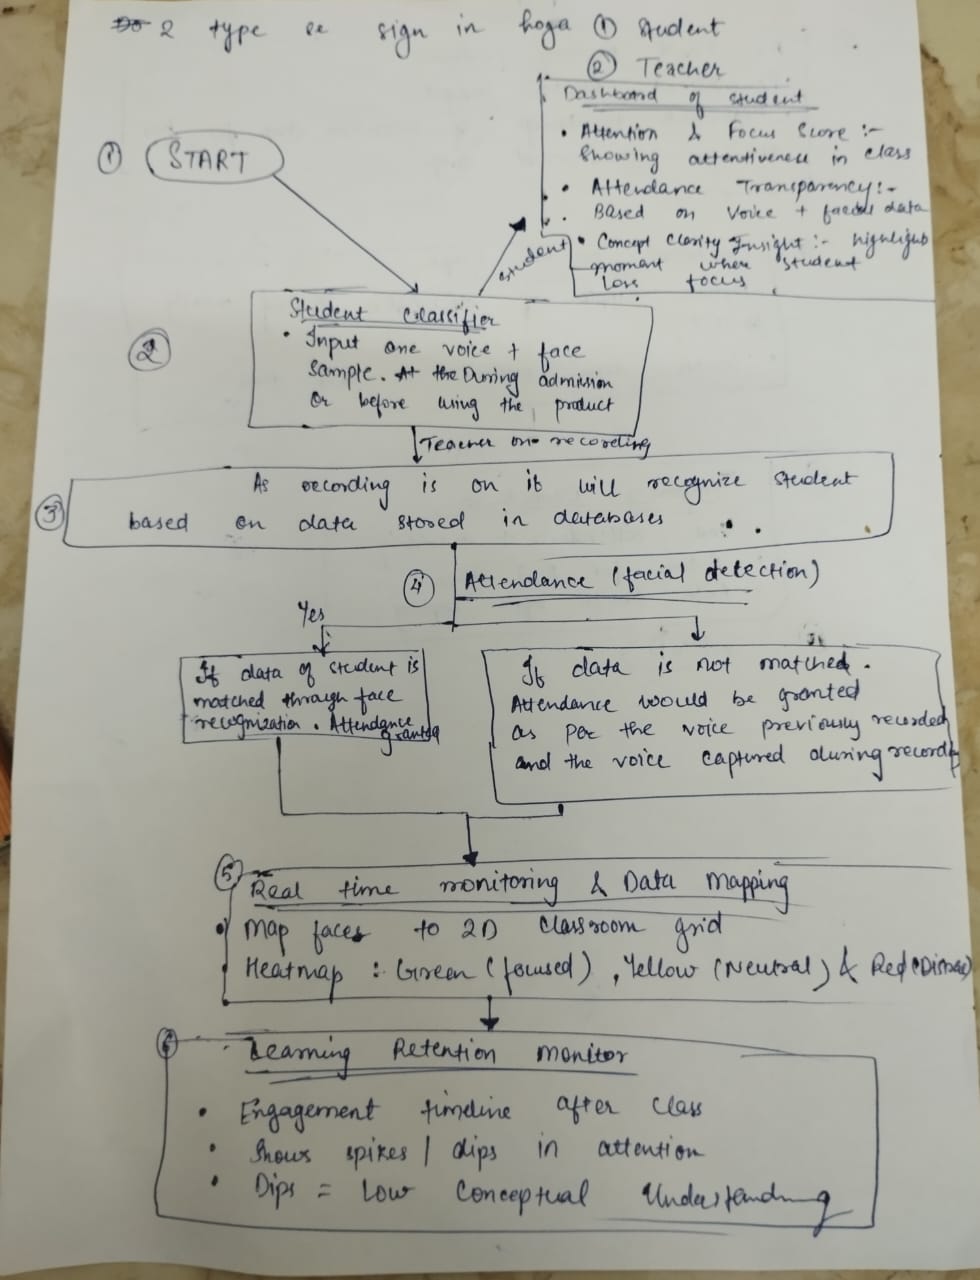 2 type se sign in hoga ① Student
② Teacher
Dashboard of student
• Attention & Focus Score :-
Showing attentiveness in class
• Attendance Transparency :-
Based on Voice + facial data
• Concept Clarity Insight :- highlight
moment where student
loss focus
① START
student
② Student Classifier
• Input one voice + face
Sample. At the During admission
or before using the product
Teacher on recording
③ As recording is on it will recognize student
based on data stored in databases
④ Attendance (facial detection)
Yes
If data of student is
matched through face
recognization. Attendance
granted
If data is not matched.
Attendance would be granted
as per the voice previously recorded
and the voice captured during recording
⑤ Real time monitoring & Data Mapping
• Map faces to 2D Classroom grid
Heatmap : Green (focused), Yellow (Neutral) & Red
⑥ Learning Retention monitor
• Engagement timeline after class
• Shows spikes / dips in attention
• Dips = Low Conceptual Understanding